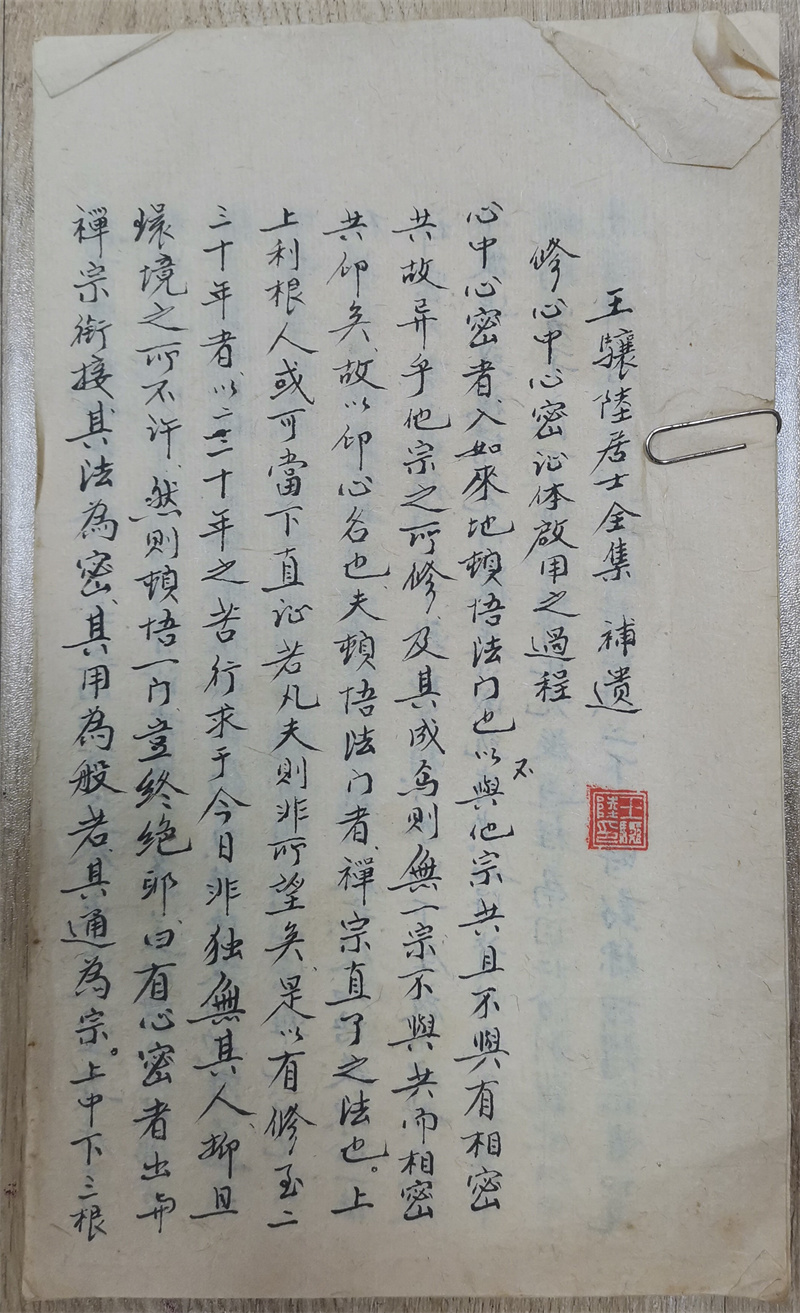 王驤陸居士全集 補遺
王驤陸印
修心中心密证体啟用之過程
心中心密者、入如來地頓悟法门也以不與他宗共且不與有相密
共故异乎他宗之所修、及其成為则無一宗不與共而相密
共仰矣、故以印心名也、夫頓悟法门者、禪宗直了之法也。上
上利根人或可當下直证若凡夫则非所望矣、是以有修至二
三十年者、以二三十年之苦行求于今日非独無其人、抑且
環境之所不许、然则頓悟一门、豈終绝耶、曰有心密者出与
禪宗銜接、其法為密、其用為般若、其通為宗。上中下三根